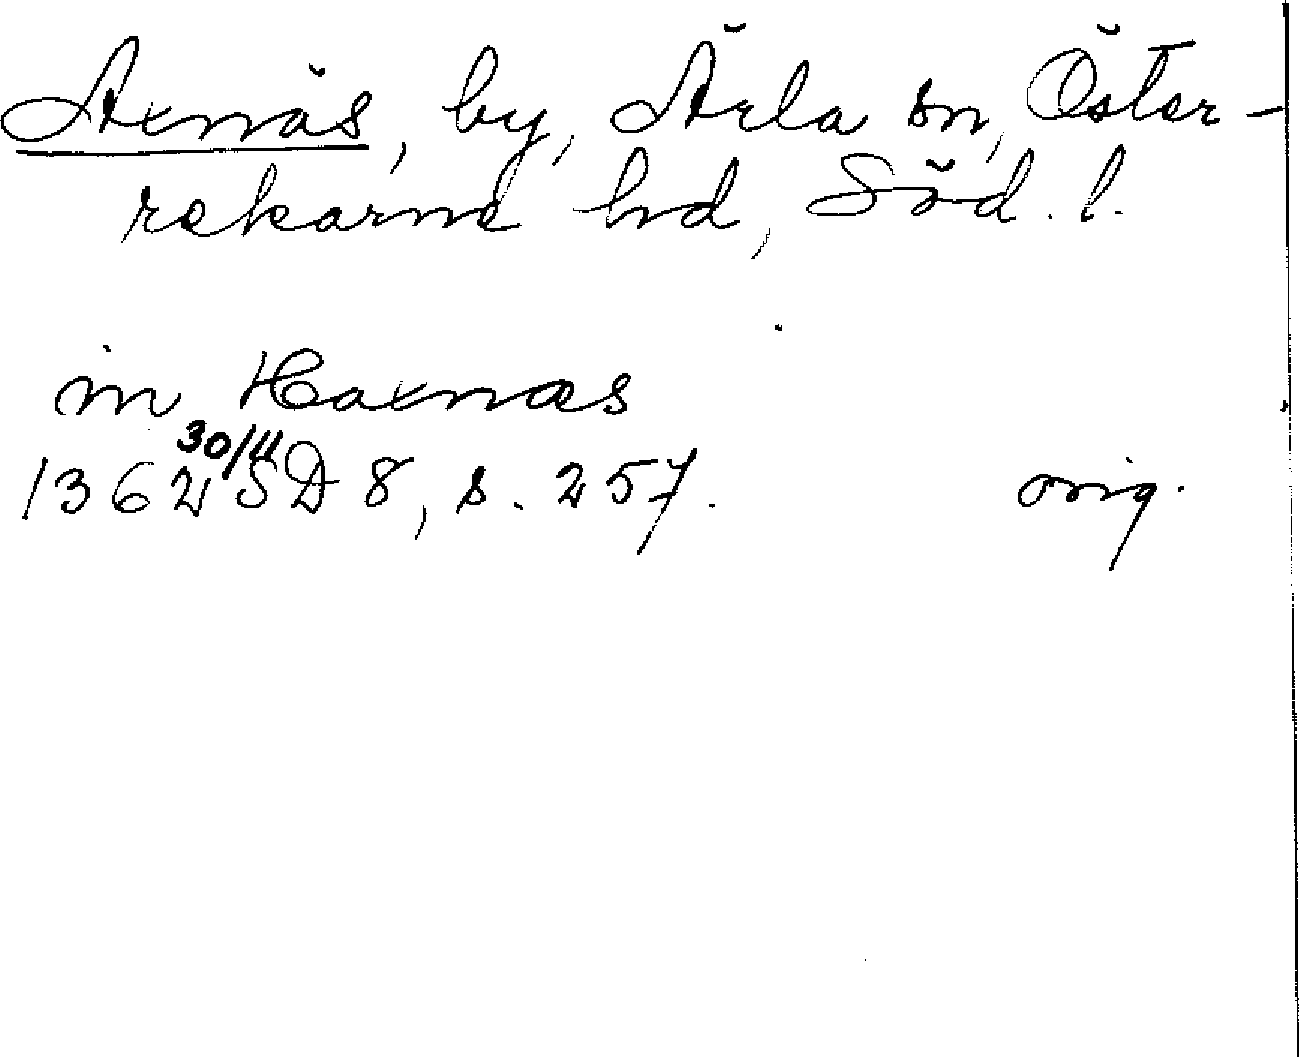 Axnäs, by, Ärla sn, Öster-
rekarne hd, Söd. l.
in Haxnæs
1362 30/11 SD 8, s. 257. orig.